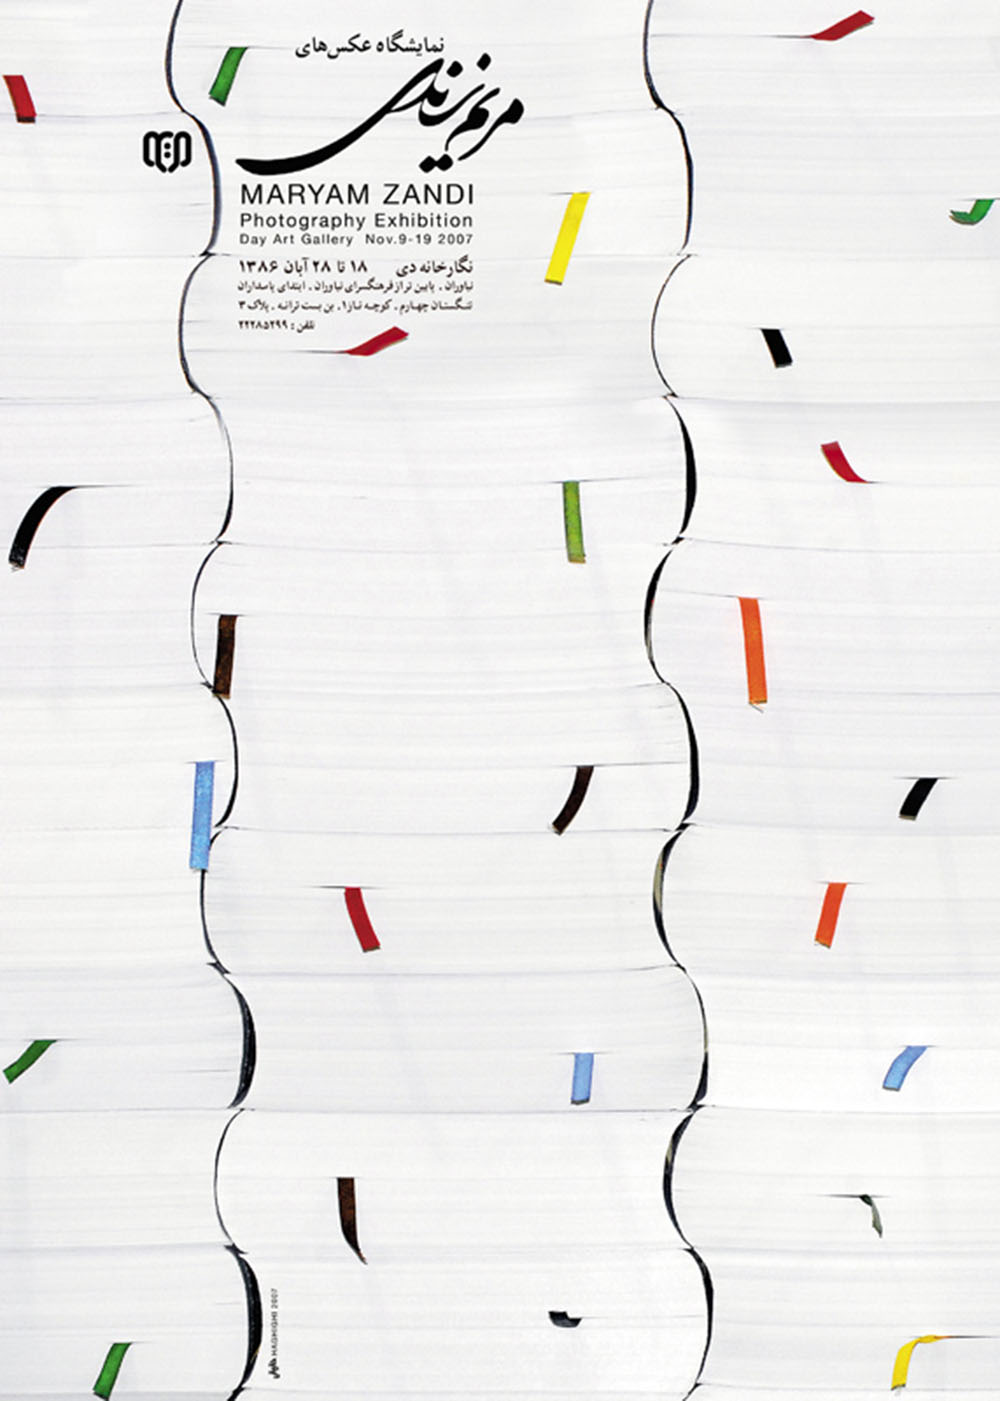 نمایشگاه عکس‌های
مریم زندی
MARYAM ZANDI
Photography Exhibition
Day Art Gallery Nov.9-19 2007
نگارخانه دی ۱۸ تا ۲۸ آبان ۱۳۸۶
نیاوران . پایین تر از فرهنگسرای نیاوران . ابتدای پاسداران
تنگستان چهارم . کوچه نیاز۱ . بن بست ترانه . پلاک ۳
تلفن : ۲۲۲۸۵۲۹۹
HAGHIGHI 2007